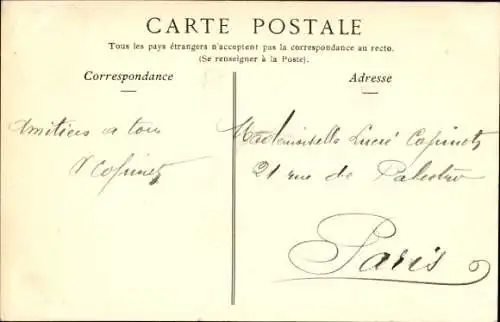 CARTE POSTALE
Tous les pays étrangers n'acceptent pas la correspondance au recto.
(Se renseigner à la Poste).
Correspondance
Amitiés a tous
Copinet
Adresse
Mademoiselle Lucie Copinet
21 rue de Palestro
Paris